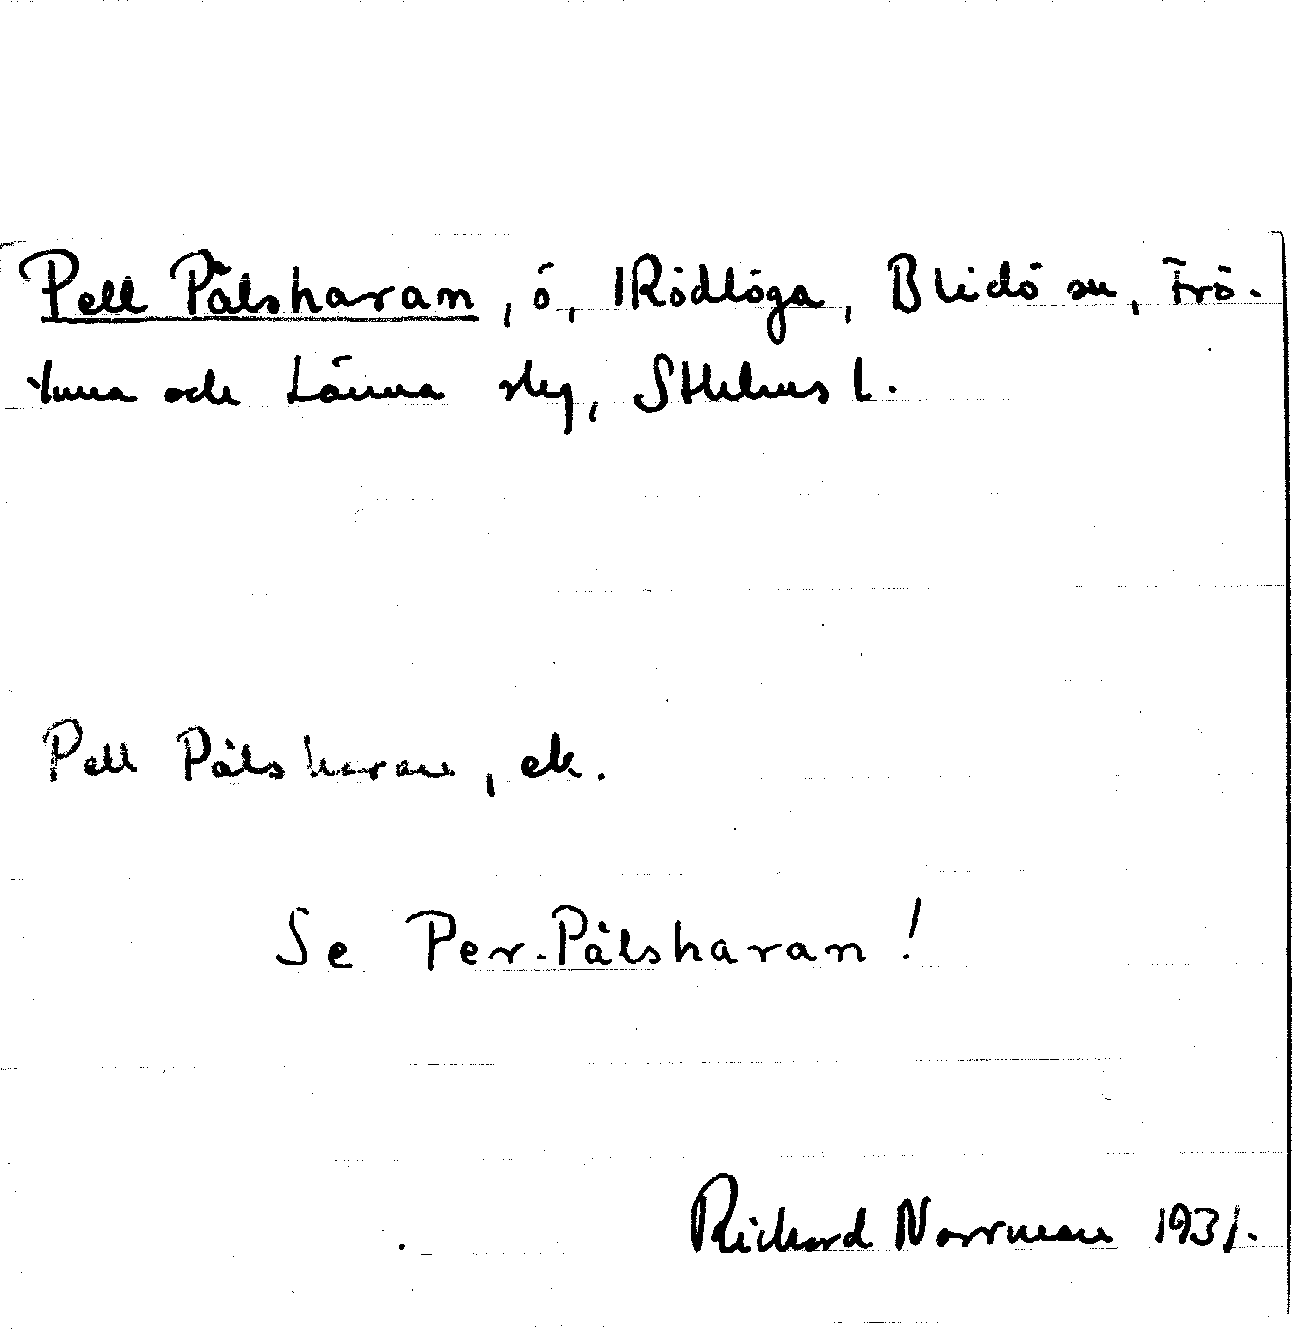 Pell Pålsharan, ö, Rödlöga, Blidö sn, Frö-
tuna och Länna skg, Sthlms l.
Pell Pålsharan, ek.
Se Per-Pålsharan!
Richard Norrman 1931.